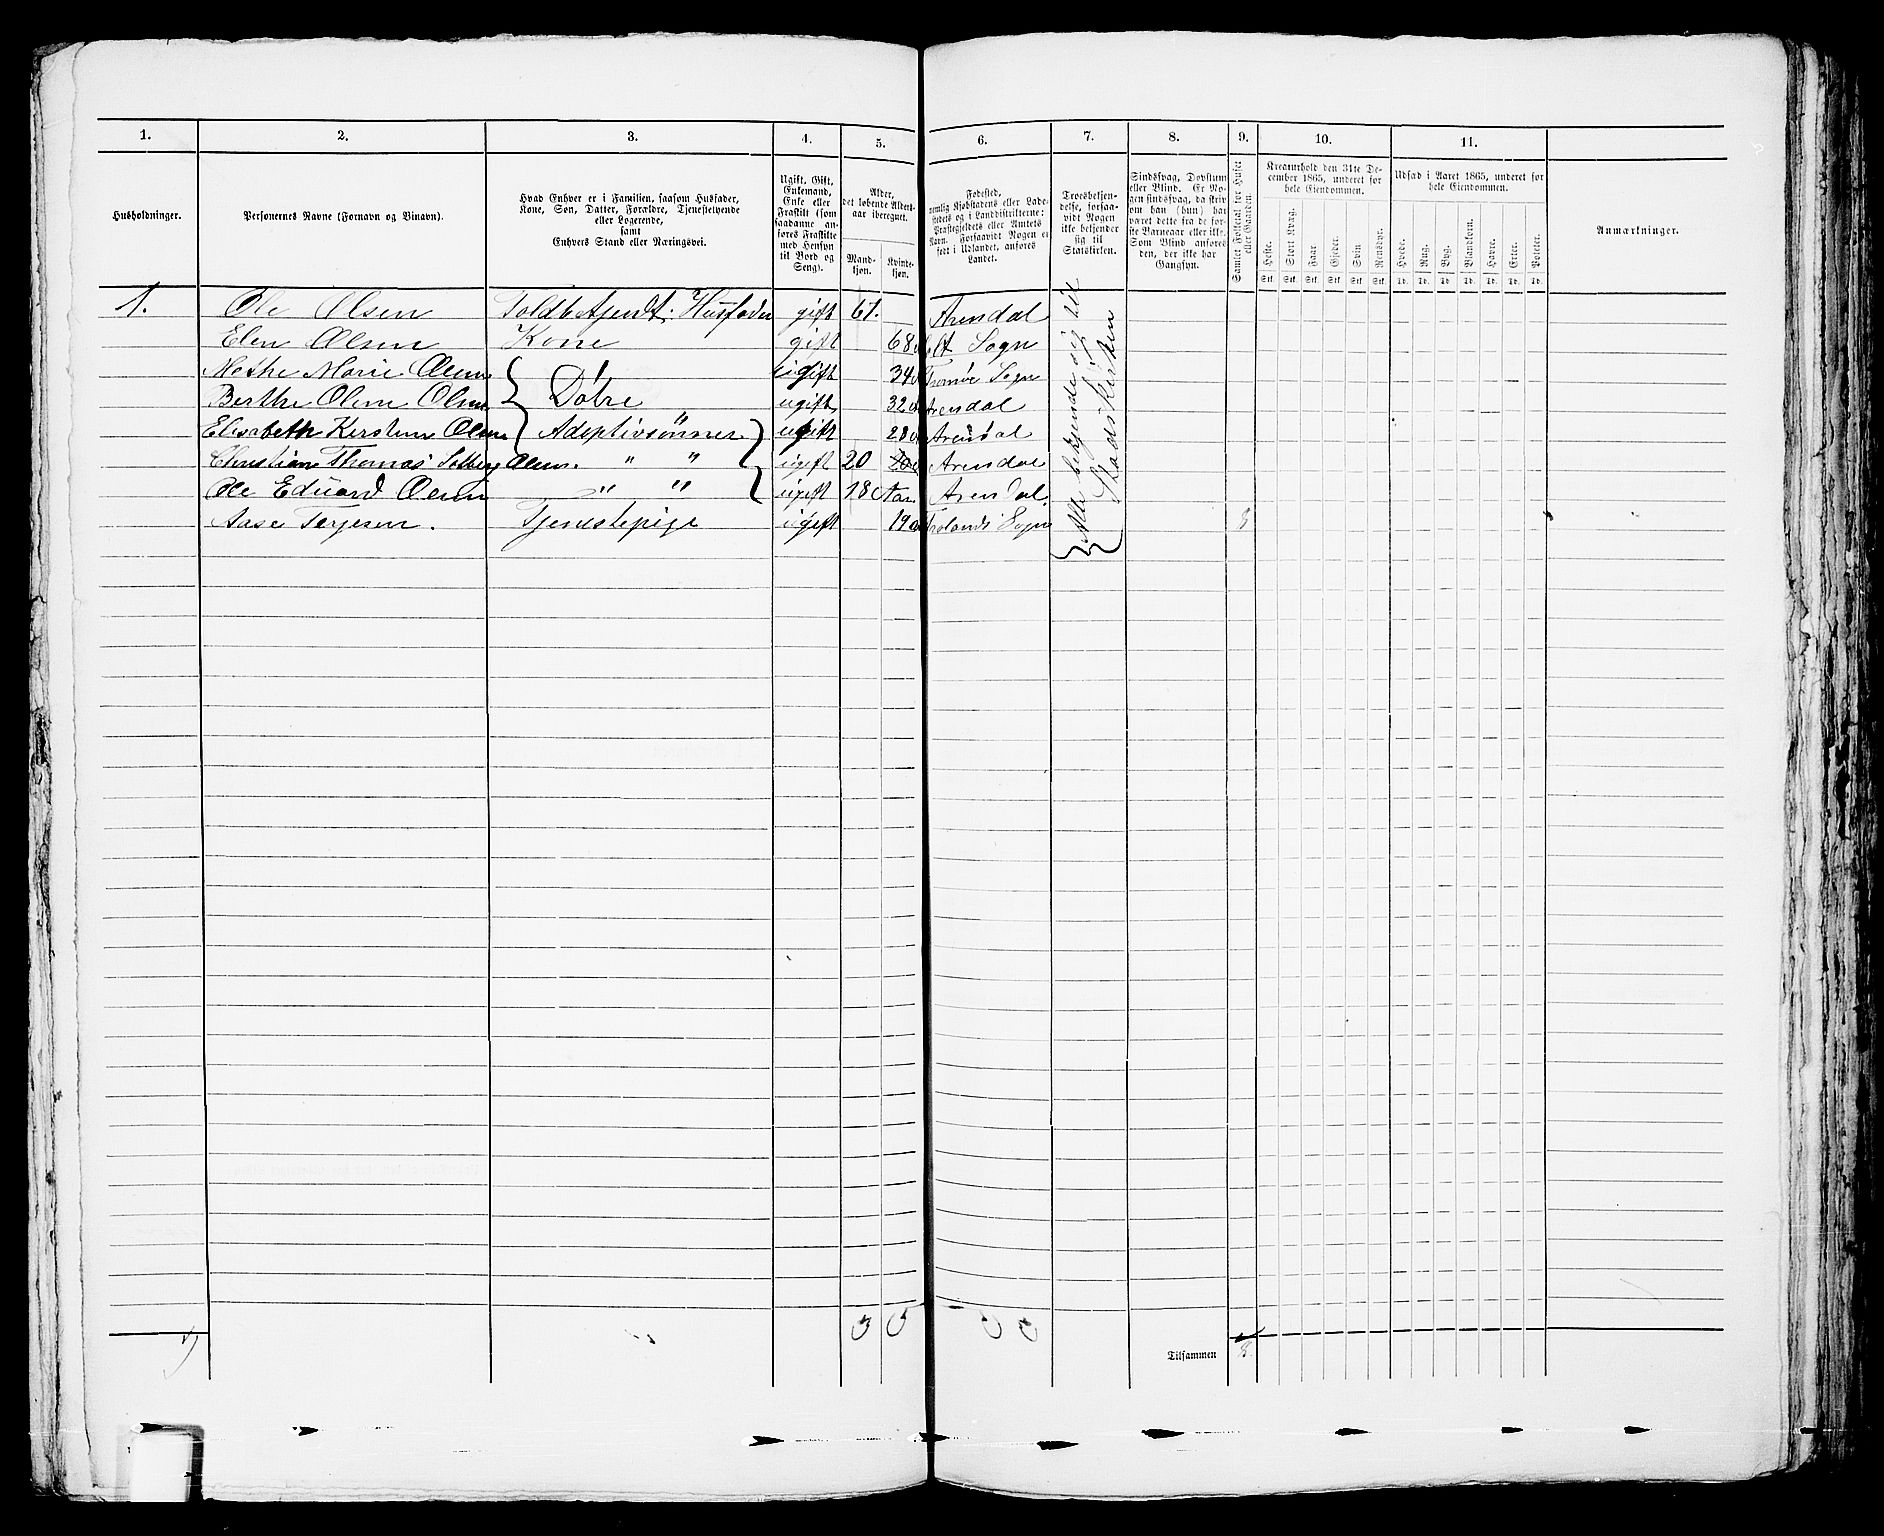 1. 2. 3. 4. 5. 6. 7. 8. 9. 10. 11.
Husholdninger.
Personernes Navne (Fornavn og Binavn).
Hvad Enhver er i Familien, saasom Husfader,
Kone, Søn, Datter, Forældre, Tjenestetyende
eller Logerende,
samt
Enhvers Stand eller Næringsvei.
Ugift, Gift,
Enkemand,
Enke eller
Fraskilt (som
saadanne an-
føres Fraskilte
med Hensyn
til Bord og
Seng).
Alder,
det løbende Alders-
aar iberegnet.
Mand-
kjøn.
Kvinde-
kjøn.
Fødested,
nemlig Kjøbstadens eller Lade-
stedets og i Landdistrikterne:
Præstegjeldets eller Amtets
Navn. Forsaavidt Nogen er
født i Udlandet, anføres
Landet.
Troesbekjen-
delse, forsaa-
vidt Nogen
ikke bekjender
sig til
Statskirken.
Sindssvag, Døvstum
eller Blind. Er No-
gen sindssvag, da skriv
om han (hun) har
været dette fra de før-
ste Barneaar eller ikke.
Som Blind anføres
den, der ikke har
Gangsyn.
Samlet Folketal for Huset
eller Gaarden.
Kreaturhold den 31te De-
cember 1865, anføret for
hele Eiendommen.
Heste. Stort Kvæg. Faar. Gjeder. Svin Rensdyr.
Stk. Stk. Stk. Stk. Stk. Stk.
Udsæd i Aaret 1865, anføret for
hele Eiendommen.
Hvede. Rug. Byg. Blandkorn. Havre. Erter. Poteter.
Td. Td. Td. Td. Td. Td. Td.
Anmærkninger.
1. Ole Olsen Toldbetjendt. Husfader gift 61. Arendal
Elen Olsen Kone gift 68 Holt Sogn
Marie Olsen Døtre ugift 34 Tromøe Sogn
Berthe Oline Olsen ugift 32 Arendal
Elisabeth Kerstine Olsen ugift 28 Arendal
Christian Thomas Solberg Olsen. Adoptivsønner " " ugift 20 Arendal
Ole Eduard Olsen " " ugift 18 Aar Arendal.
Aase Terjesen. Tjenestepige ugift 19 Frolands Sogn 8
Alle bekjende sig til
Stadskirken
Tilsammen 8.